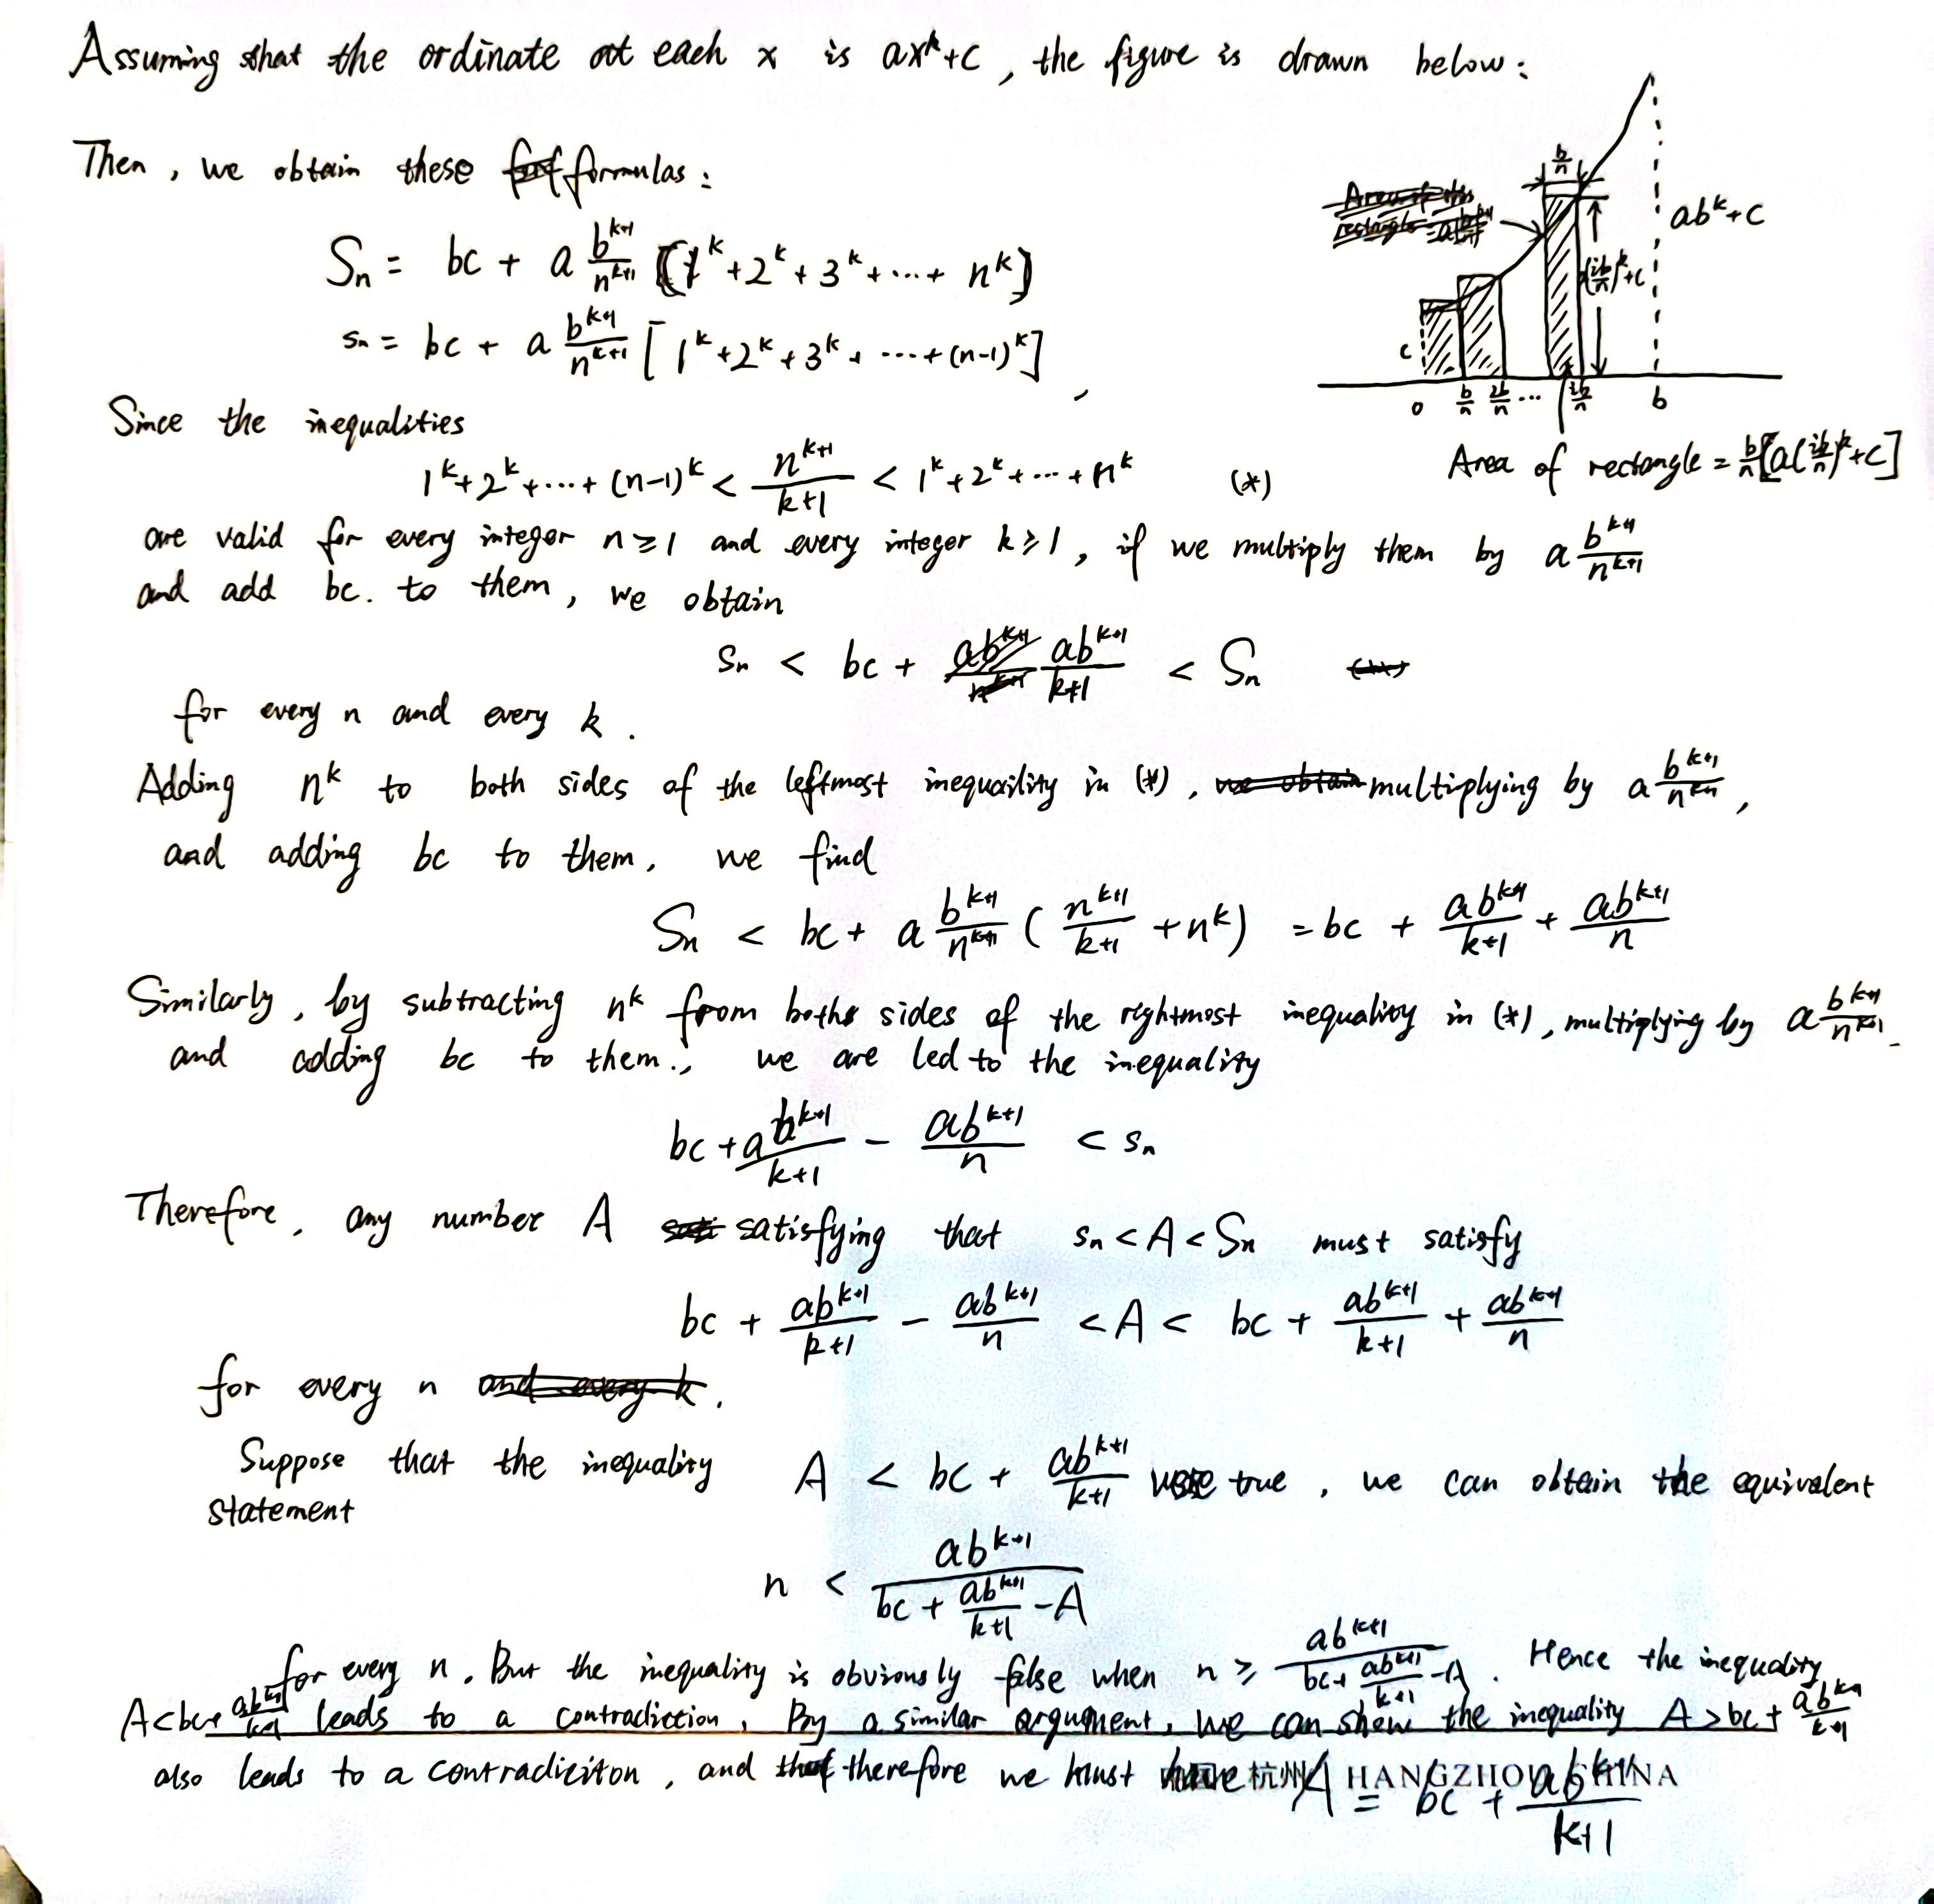 Assuming that the ordinate at each x is ax^k+c, the figure is drawn below:
Then, we obtain these formulas:
S_n = bc + a b^{k+1}/n^{k+1} [1^k+2^k+3^k+...+n^k]
s_n = bc + a b^{k+1}/n^{k+1} [1^k+2^k+3^k+...+(n-1)^k],
b/n
ab^k+c
(ib/n)^k+c
c
0 b/n 2b/n ... ib/n b
Area of rectangle = b/n[a(ib/n)^k+c]
Since the inequalities
1^k+2^k+...+(n-1)^k < n^{k+1}/(k+1) < 1^k+2^k+...+n^k (*)
are valid for every integer n≥1 and every integer k≥1, if we multiply them by a b^{k+1}/n^{k+1}
and add bc. to them, we obtain
s_n < bc + ab^{k+1}/(k+1) < S_n
for every n and every k.
Adding n^k to both sides of the leftmost inequaility in (*), multiplying by a b^{k+1}/n^{k+1},
and adding bc to them, we find
S_n < bc + a b^{k+1}/n^{k+1} (n^{k+1}/(k+1) + n^k) = bc + ab^{k+1}/(k+1) + ab^{k+1}/n
Similarly, by subtracting n^k from both sides of the rightmost inequality in (*), multiplying by a b^{k+1}/n^{k+1}
and adding bc to them., we are led to the inequality
bc + a b^{k+1}/(k+1) - ab^{k+1}/n < s_n
Therefore, any number A satisfying that s_n < A < S_n must satisfy
bc + ab^{k+1}/(k+1) - ab^{k+1}/n < A < bc + ab^{k+1}/(k+1) + ab^{k+1}/n
for every n.
Suppose that the inequality A < bc + ab^{k+1}/(k+1) were true, we can obtain the equivalent
statement
n < ab^{k+1}/(bc + ab^{k+1}/(k+1) - A)
for every n. But the inequality is obviously false when n ≥ ab^{k+1}/(bc + ab^{k+1}/(k+1) - A). Hence the inequality
A<bc+ ab^{k+1}/(k+1) leads to a contradiction. By a similar argument, we can show the inequality A>bc+ ab^{k+1}/(k+1)
also leads to a contradiciton, and therefore we must have A = bc + ab^{k+1}/(k+1)
杭州 HANGZHOU CHINA